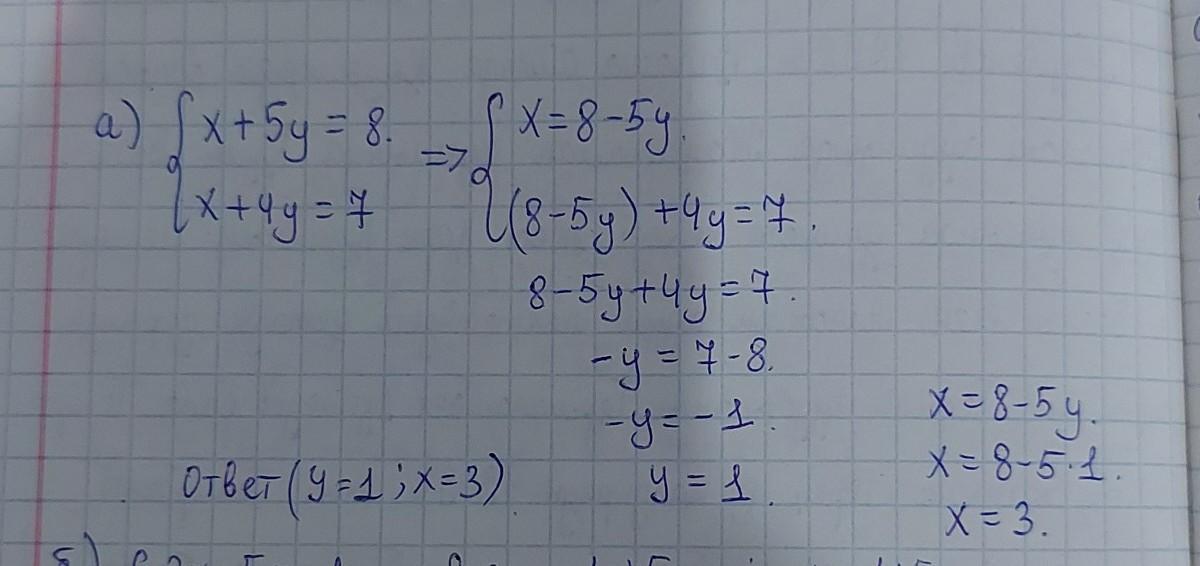 а) { x+5y=8. => { x=8-5y.
x+4y=7 (8-5y)+4y=7.
8-5y+4y=7.
-y=7-8.
-y=-1.
y=1.
x=8-5y.
x=8-5·1.
x=3.
Ответ (y=1; x=3).
б)